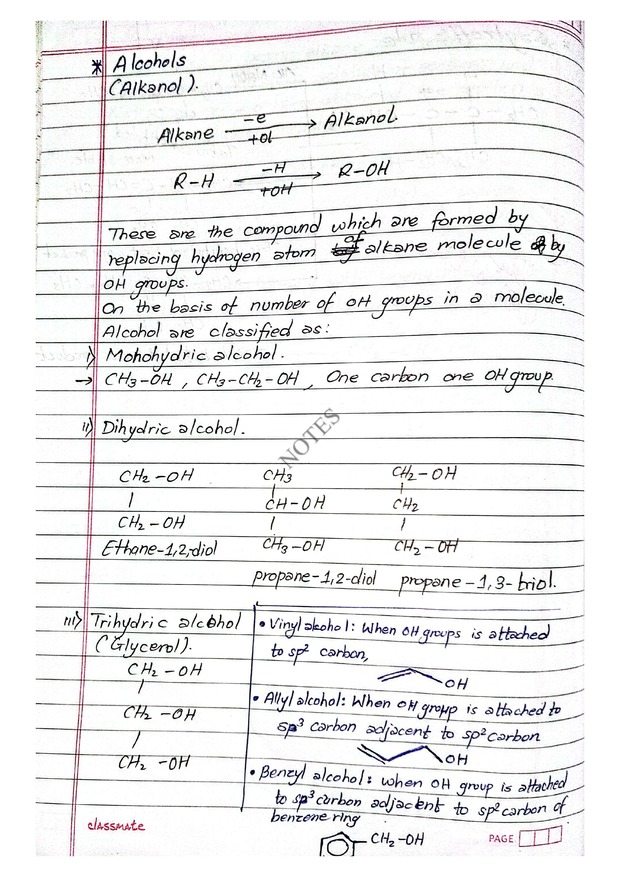 * Alcohols
(Alkanol).
Alkane —e/+ol→ Alkanol.
R-H —H/+OH→ R-OH
These are the compound which are formed by
replacing hydrogen atom of alkane molecule by
OH groups.
On the basis of number of OH groups in a molecule.
Alcohol are classified as:
i) Monohydric alcohol.
→ CH3-OH, CH3-CH2-OH, One carbon one OH group.
ii) Dihydric alcohol.
CH2-OH CH3 CH2-OH
| | |
CH-OH CH2
| | |
CH2-OH CH3-OH CH2-OH
Ethane-1,2,-diol
propane-1,2-diol propane-1,3-triol.
iii) Trihydric alcohol
(Glycerol).
CH2-OH
|
CH2-OH
|
CH2-OH
• Vinyl alcohol: When OH groups is attached
to sp2 carbon,
OH
• Allyl alcohol: When OH group is attached to
sp3 carbon adjacent to sp2 carbon
OH
• Benzyl alcohol: when OH group is attached
to sp3 carbon adjacent to sp2 carbon of
benzene ring
CH2-OH
NOTES
classmate
PAGE